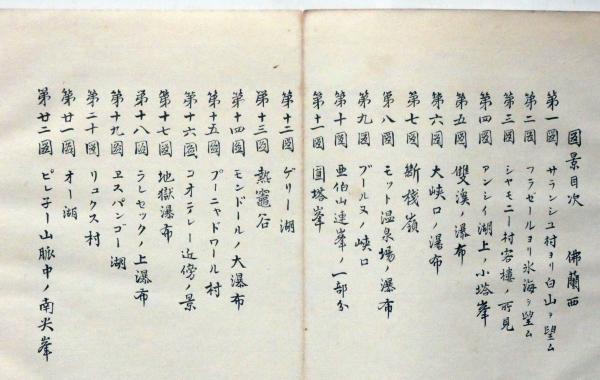 圖景目次 佛蘭西
第一圖 サランシュ村ヨリ白山ヲ望ム
第二圖 フラゼールヨリ氷海ヲ望ム
第三圖 シャモニー村客樓ノ所見
第四圖 アンシイ湖上ノ小塔峯
第五圖 雙溪ノ瀑布
第六圖 大峽口ノ瀑布
第七圖 斷棧嶺
第八圖 モット温泉場ノ瀑布
第九圖 ブールヌノ峽口
第十圖 亜伯山連峯ノ一部分
第十一圖 圓塔峯
第十二圖 ゲリー湖
第十三圖 熱竈谷
第十四圖 モンドールノ大瀑布
第十五圖 プーニャドワール村
第十六圖 コオテレー近傍ノ景
第十七圖 地獄瀑布
第十八圖 ラレセックノ上瀑布
第十九圖 ヱスパンゴー湖
第二十圖 リュクス村
第廿一圖 オー湖
第廿二圖 ピレ子ー山脈中ノ南尖峯